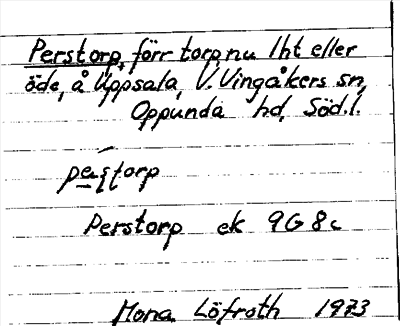 Perstorp, förr torp, nu lht eller
öde, å Uppsala, V. Vingåkers sn,
Oppunda hd, Söd.l.
pæʂtorp
Perstorp ek 9G 8c
Mona Löfroth 1973